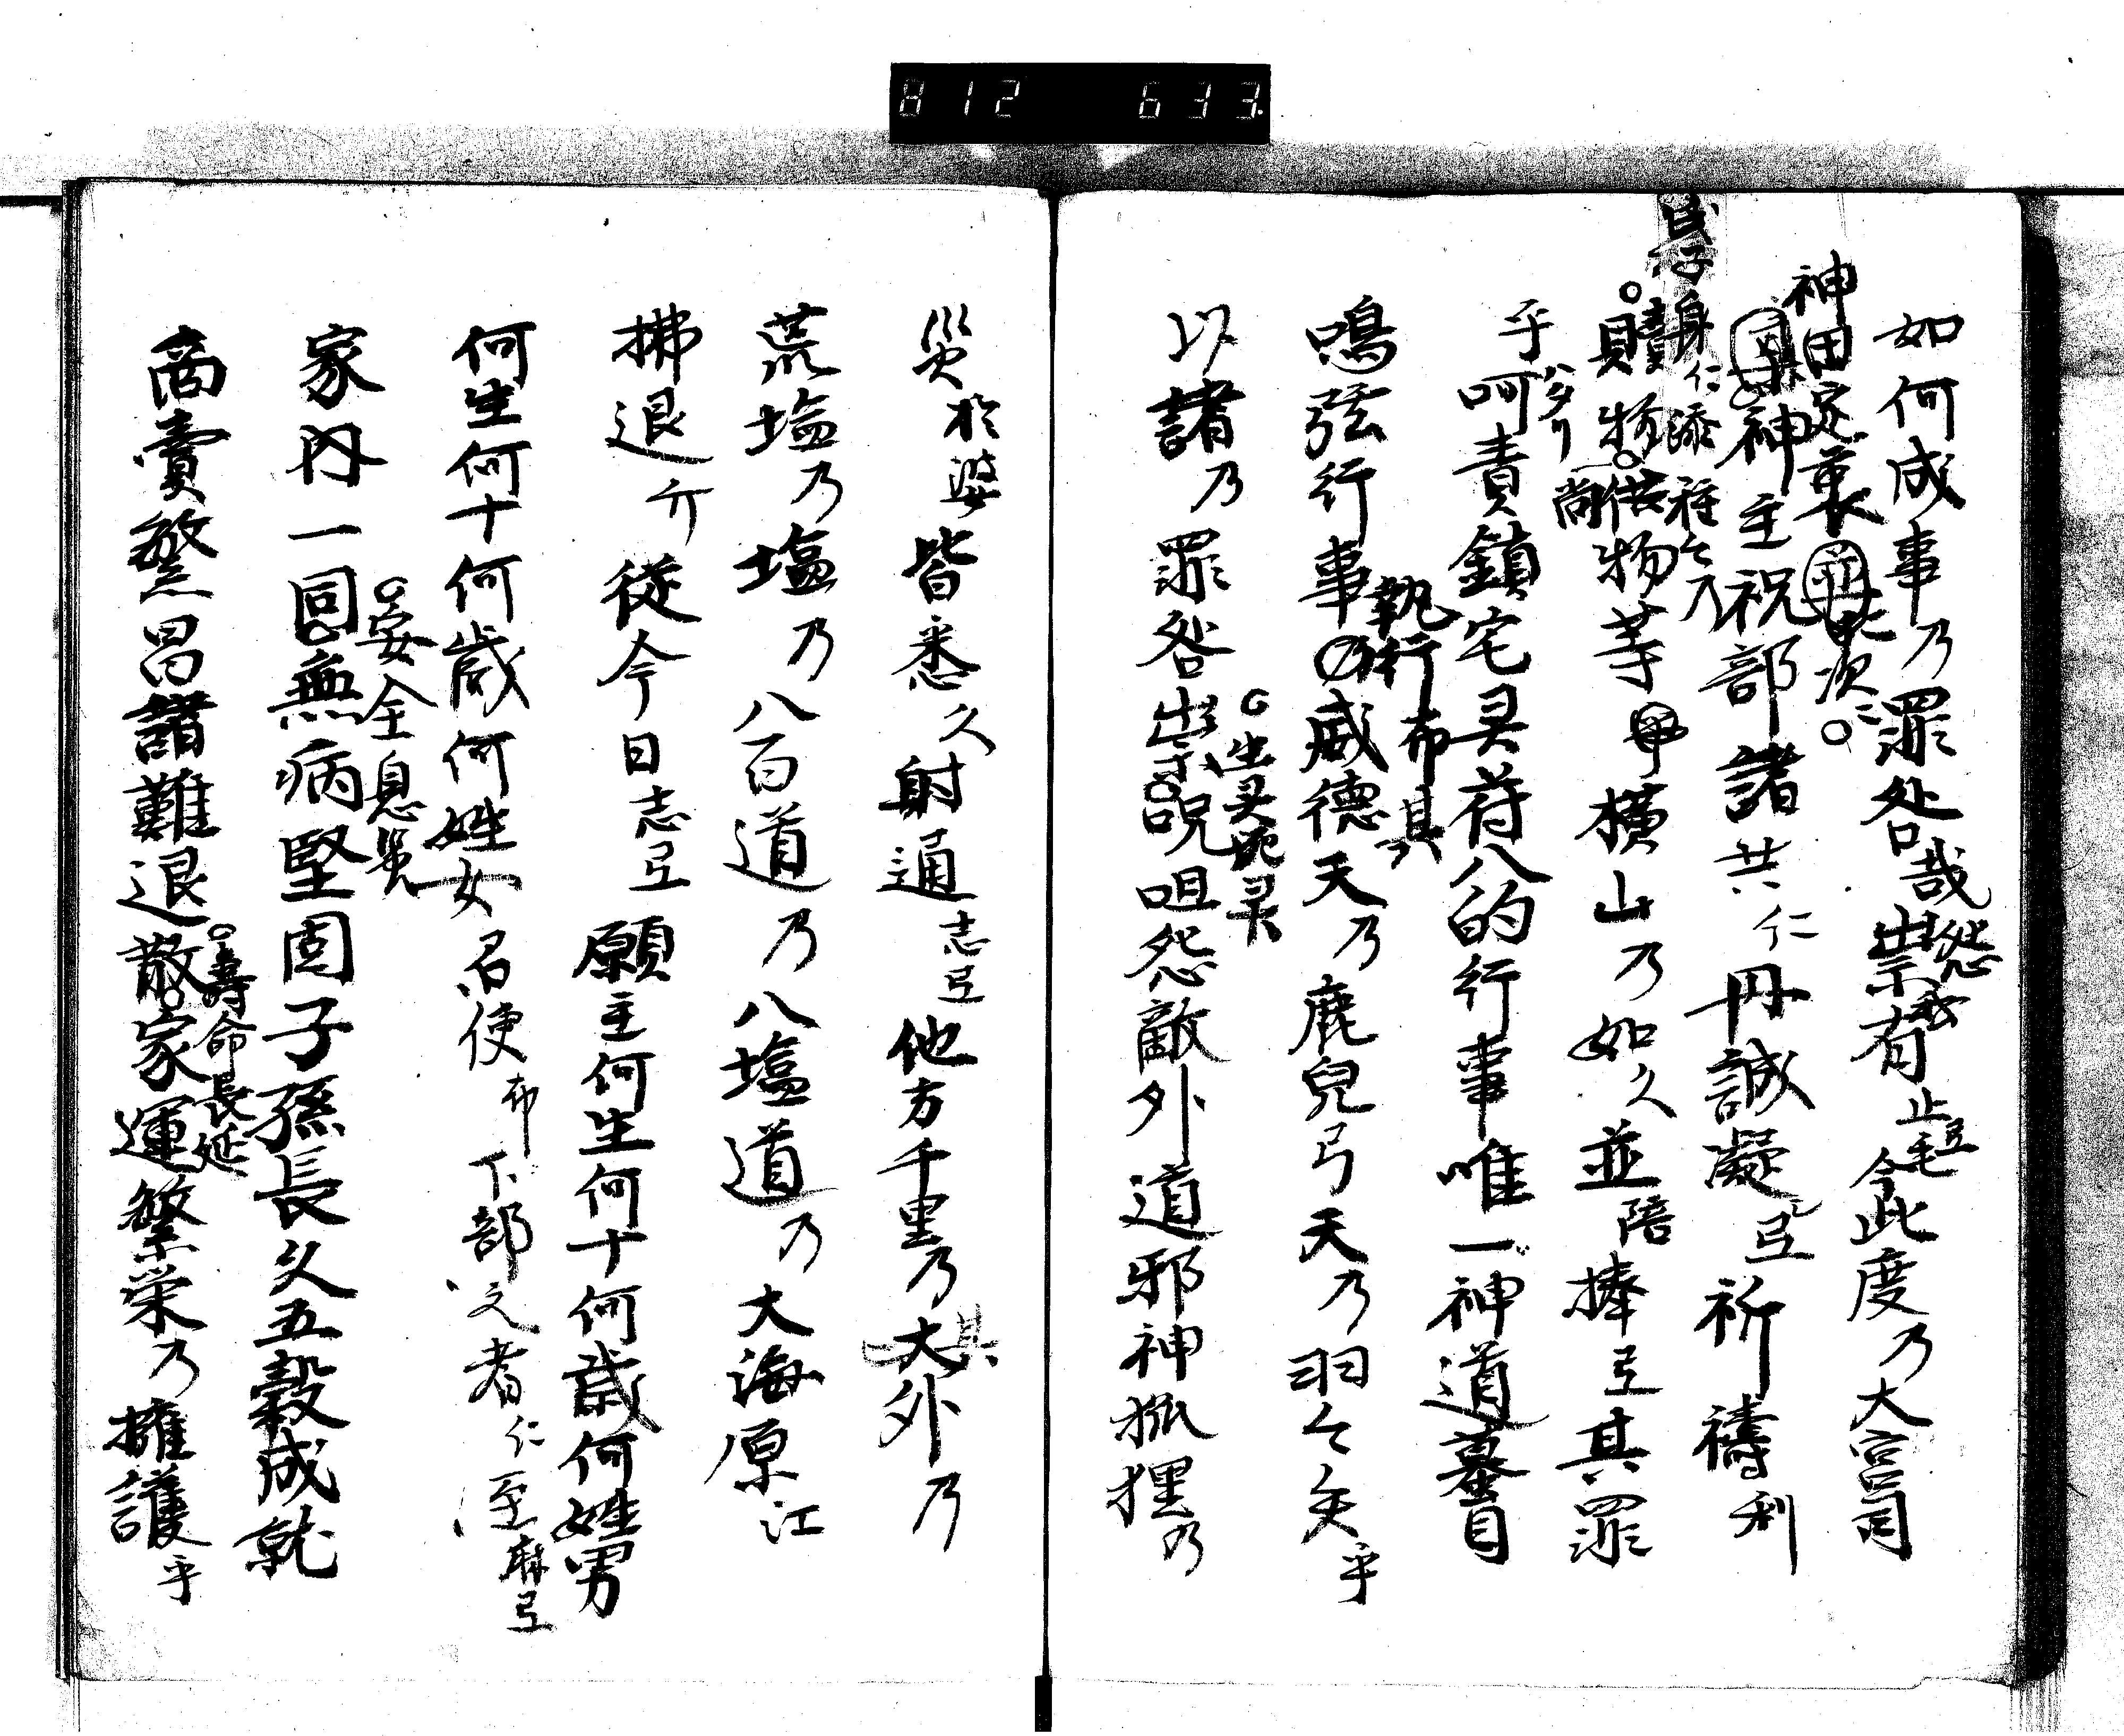 812 633
如何成事乃罪咎哉祟有止毛今此度乃大宮司
怨
弖
神田定衷
次二
神主祝部諸共仁丹誠凝弖祈禱利
身仁添雅
贖物供物等横山乃如久並陪捧弖其罪
尚
乎呵責鎮宅灵符八的行事唯一神道墓目
執行布其
鳴弦行事威德天乃鹿兒弓天乃羽々矢乎
生灵死灵
以諸乃罪咎祟呪咀怨敵外道邪神狐狸乃
災於婆皆悉久射通志弖他方千里乃大外乃
其
荒塩乃塩乃八百道乃八塩道乃大海原江
拂退介従今日志弖願主何生何十何歳何姓男
何生何十何歳何姓女召使布下部之者仁至麻弖
安全息災
家内一同無病堅固子孫長久五穀成就
壽命長延
商賣繁昌諸難退散家運繁栄乃擁護乎